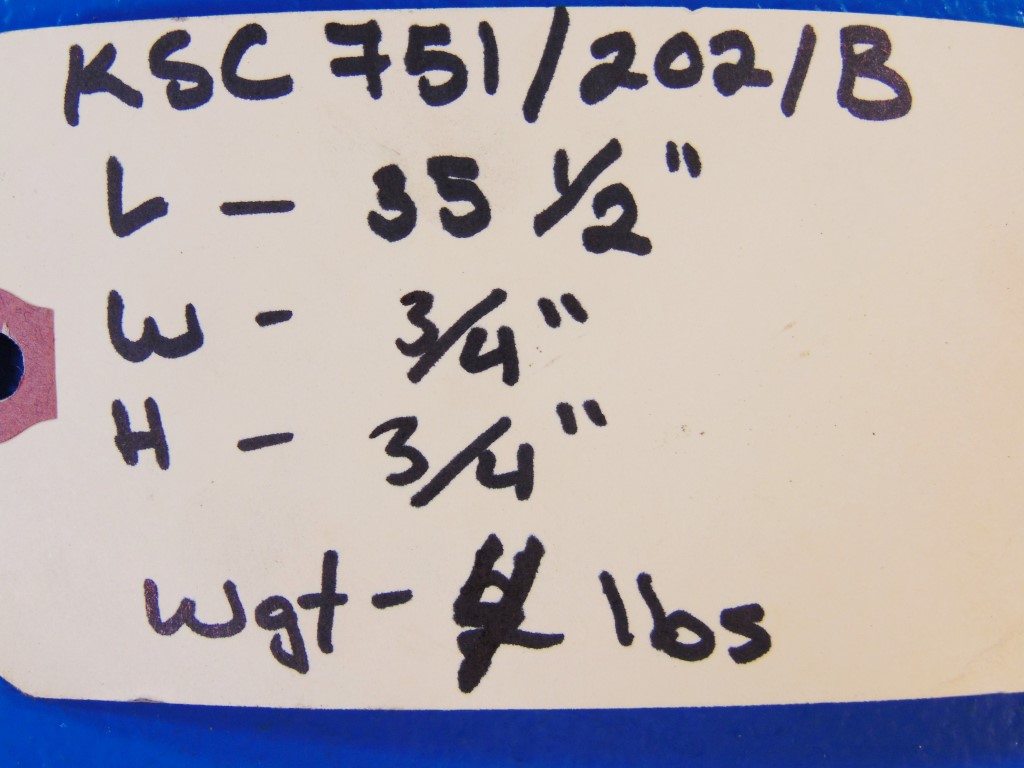 KSC 751/202/B
L - 35 1/2"
W - 3/4"
H - 3/4"
Wgt - lbs